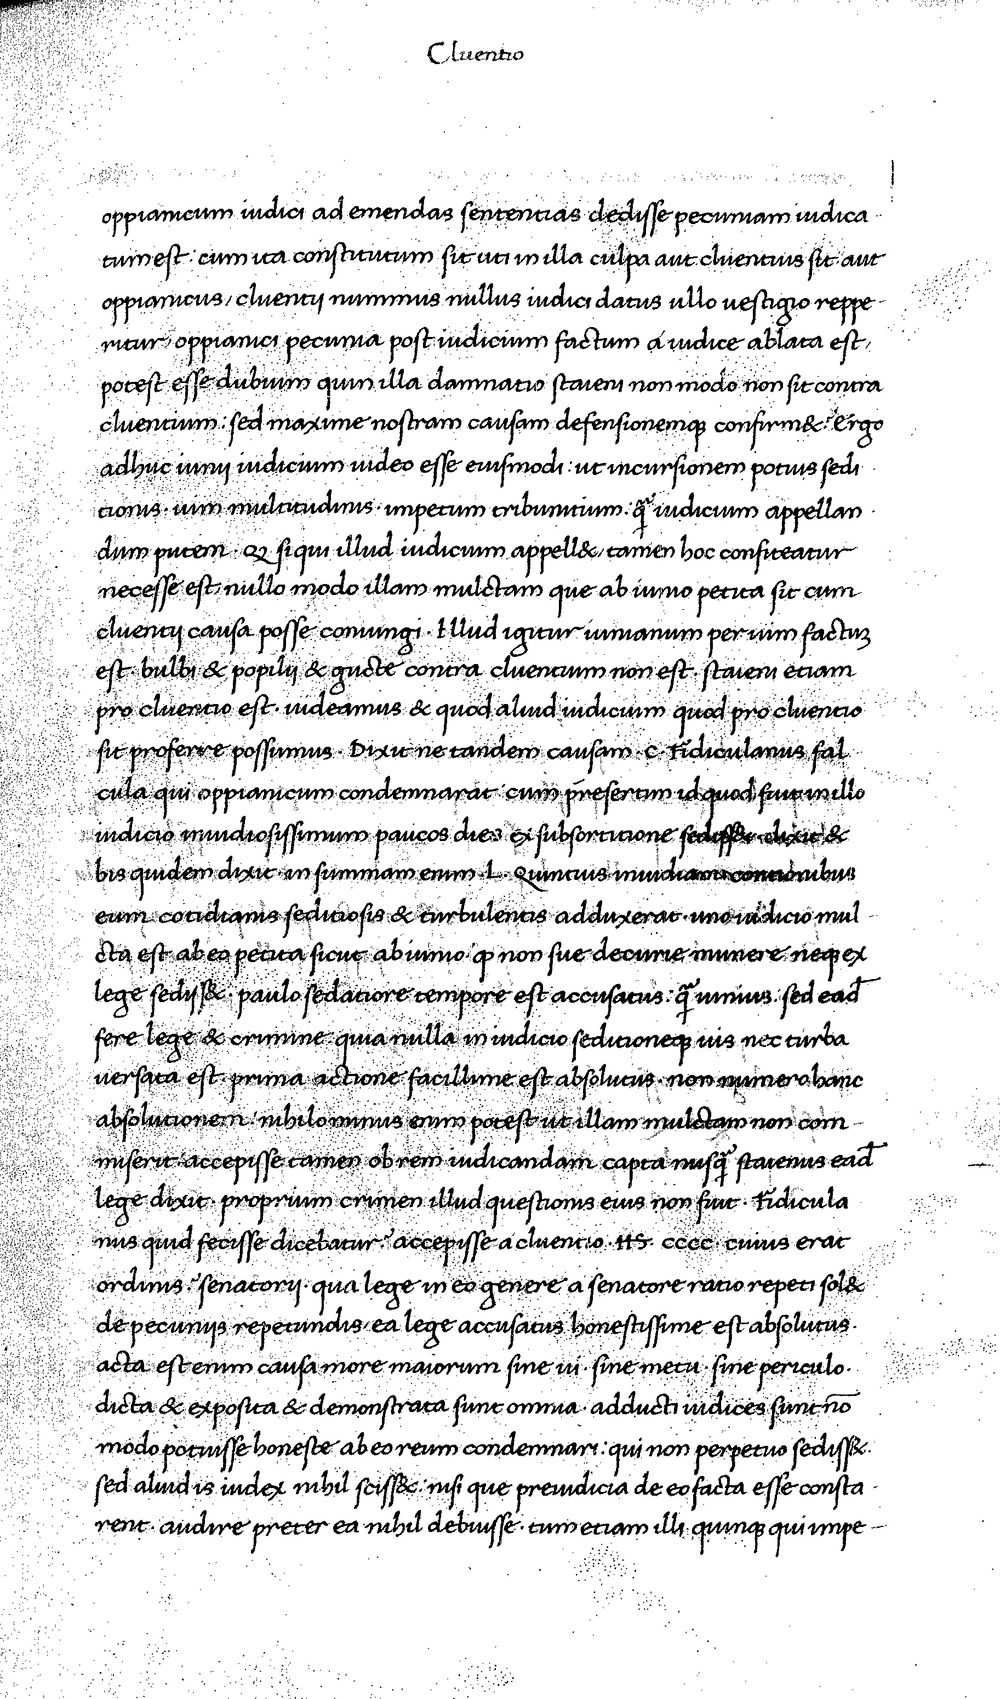 Cluentio
oppianicum iudici ad emendas sententias dedisse pecuniam iudica
tum est : cum ita constitutum sit uti in illa culpa aut cluentius sit aut
oppianicus / cluentij nummus nullus iudici datus ullo uestigio reppe
ritur / oppianici pecunia post iudicium factum á iudice ablata est /
potest esse dubium quin illa damnatio staieni non modo non sit contra
cluentium : sed maxime nostram causam defensionemqꝫ confirm& ? Ergo
adhuc iunij iudicium uideo esse eiusmodi : ut incursionem potius sedi
tionis · uim multitudinis · impetum tribunitium · ꝙ̃ iudicium appellan
dum putem · Q siqui illud iudicium appell& / tamen hoc confiteatur
necesse est / nullo modo illam mulctam que ab iunio petita sit cum
cluentij causa posse coniungi · Illud igitur iunianum per uim factuꝫ
est · bulbi & popilij & gucte contra cluentium non est · staieni etiam
pro cluentio est · uideamus & quod aliud iudicium quod pro cluentio
sit proferre possimus · Dixit ne tandem causam · C · fidiculanus fal
cula qui oppianicum condemnarat : cum p̄sertim id quod fuit in illo
iudicio inuidiosissimum paucos dies ex subsortitione sediss& · dixit &
bis quidem dixit · in summam enim · L · Quintius inuidiam contionibus
eum cotidianis seditiosis & turbulentis adduxerat · uno iudicio mul
cta est ab eo petita sicut ab iunio ꝙ non sue decurie munere neqꝫ ex
lege sediss& · paulo sedatiore tempore est accusatus : ꝙ̃ iunius · sed ead̄
fere lege & crimine · quia nulla in iudicio seditioneqꝫ uis nec turba
uersata est · prima actione facillime est absolutus · non numero hanc
absolutionem : nihilominus enim potest ut illam mulctam non com
miserit · accepisse tamen ob rem iudicandam capta nusꝙ̃ staienus ead̄
lege dixit · proprium crimen illud questionis eius non fuit · fidicula
nus quid fecisse dicebatur ? accepisse a cluentio HS · cccc · cuius erat
ordinis ? senatorij · qua lege in eo genere a senatore ratio repeti sol&
de pecunijs repetundis / ea lege accusatus honestissime est absolutus ·
acta est enim causa more maiorum sine ui · sine metu · sine periculo ·
dicta & exposita & demonstrata sunt omnia · adducti iudices sunt nō
modo potuisse honeste ab eo reum condemnari : qui non perpetuo sediss& ·
sed aliud is iudex nihil sciss& : nisi que preiudicia de eo facta esse consta
rent · audire preter ea nihil debuisse · tum etiam illi quinqꝫ qui impe